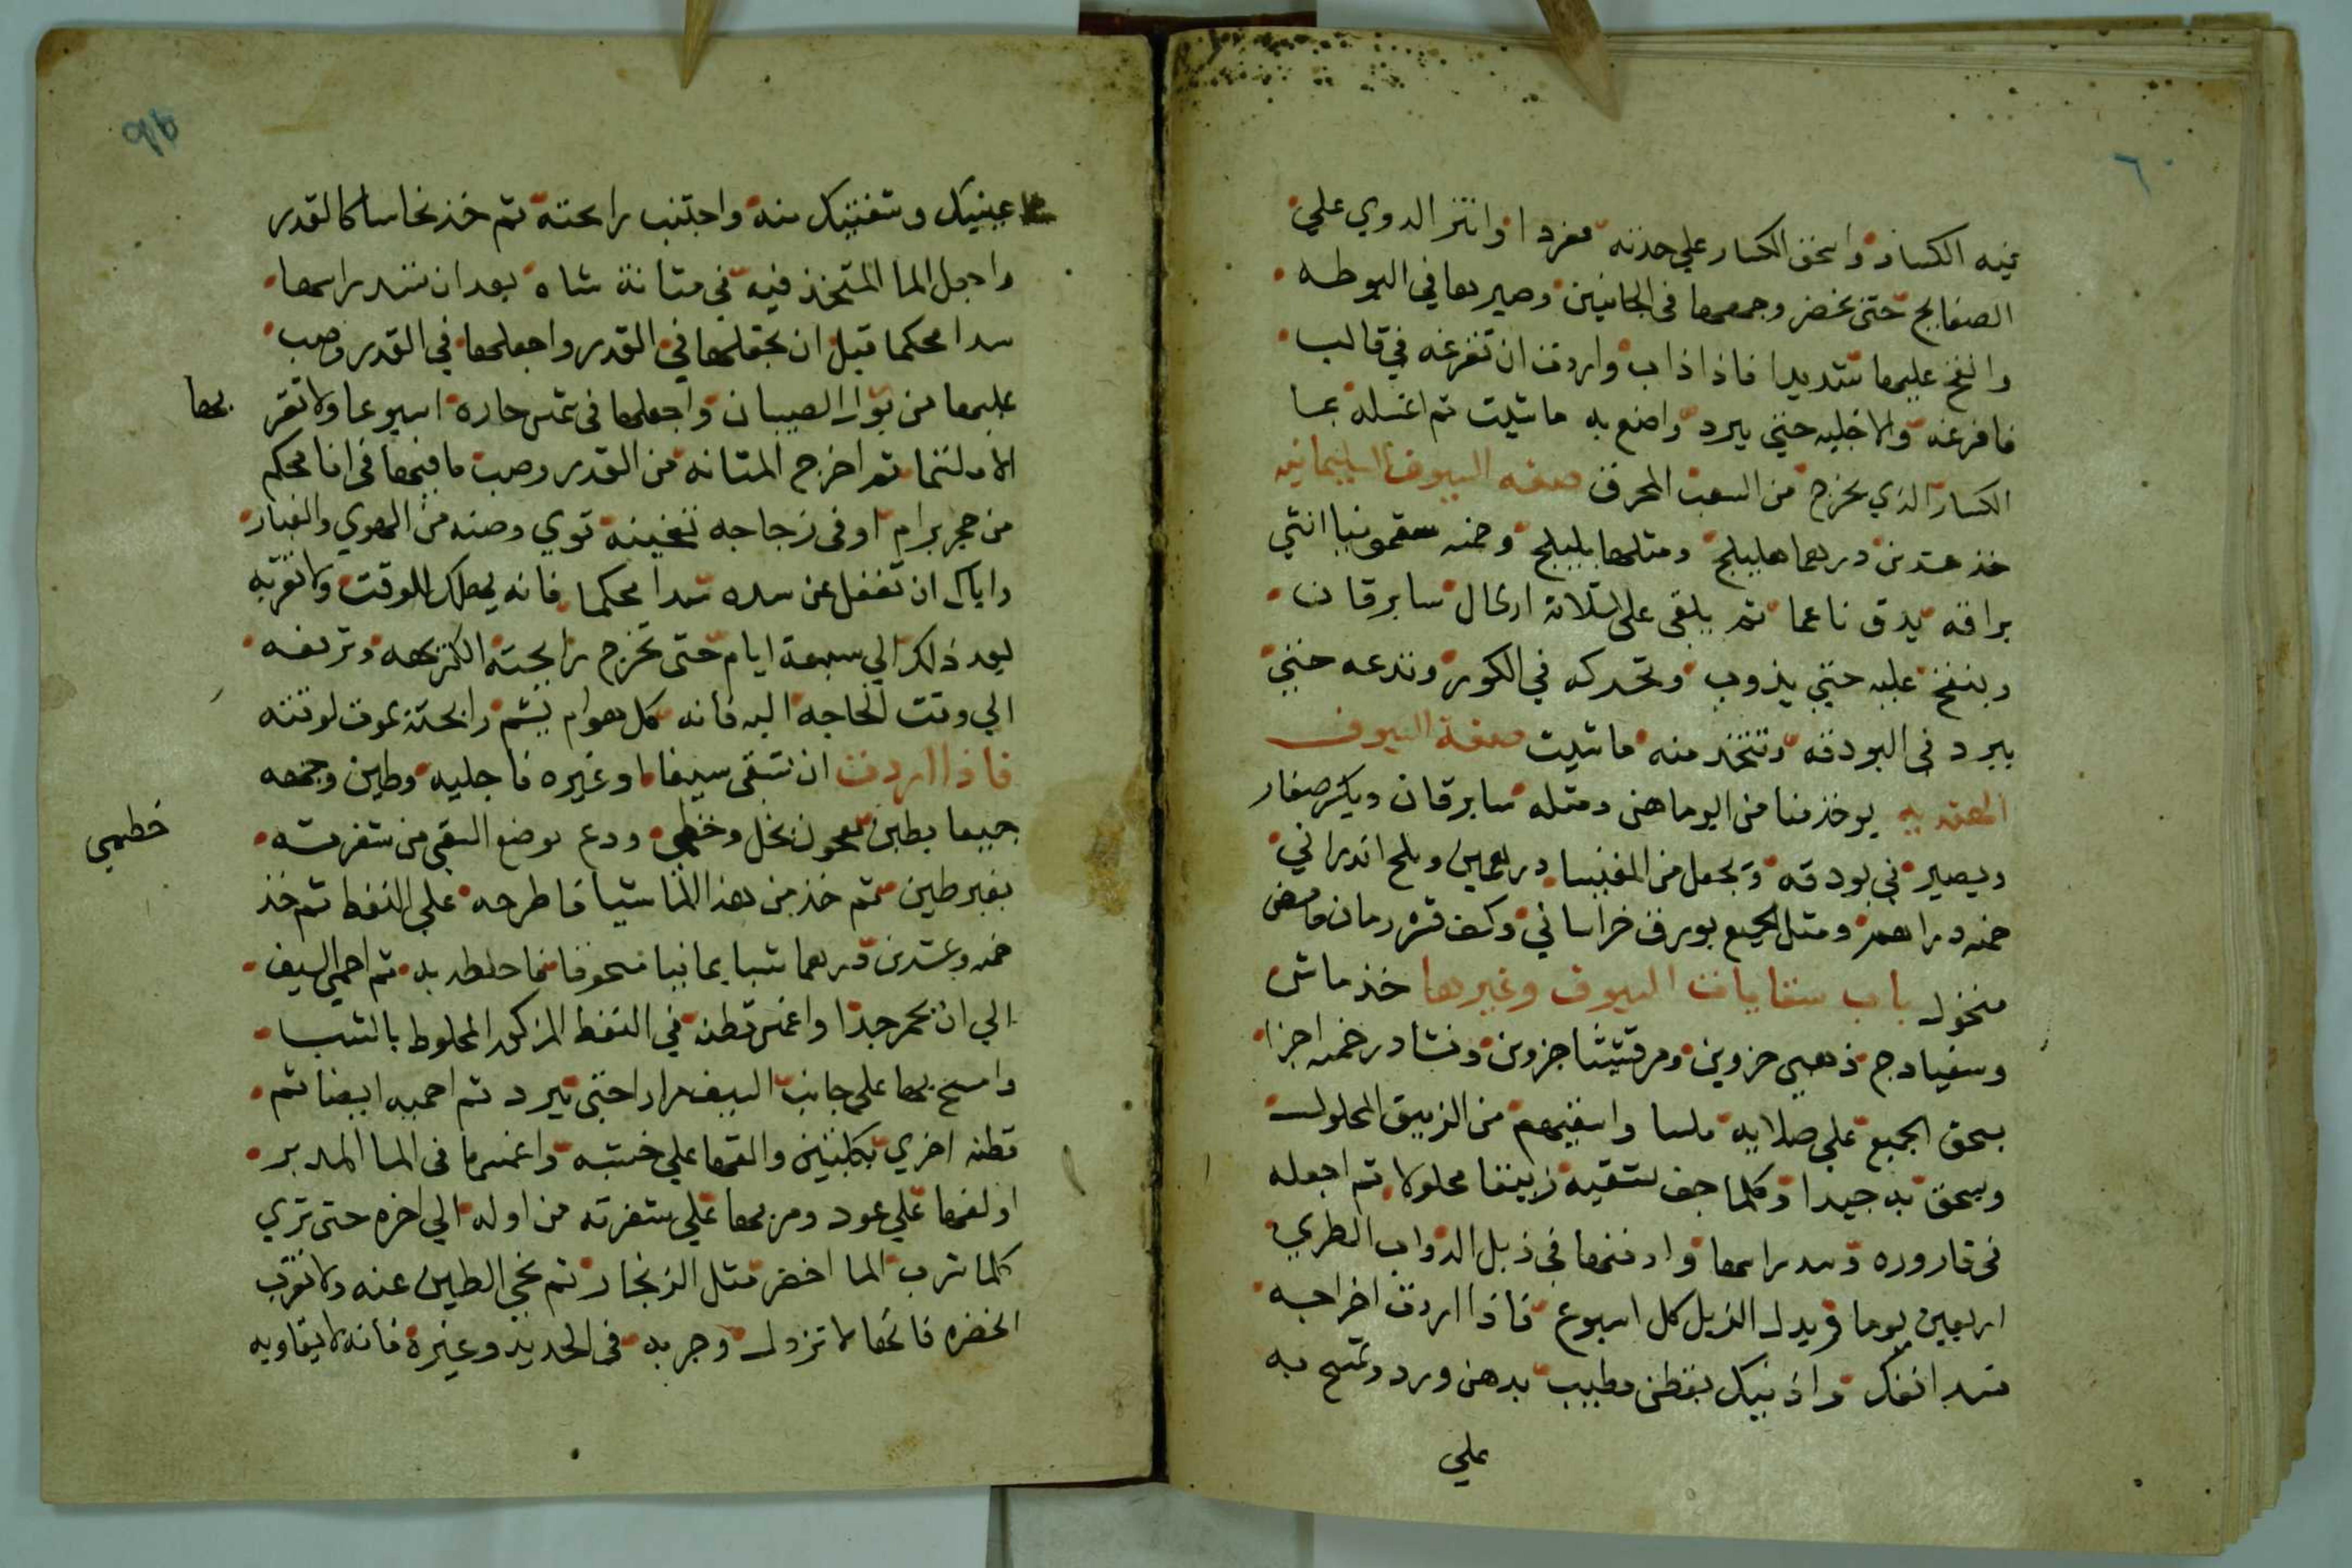 فيه الكسار واسحق الكسار علي حدته مفردا وانثر الدوي علي
الصفايح حتى تخضر وجمعها فى الجانبين وصيرها في البوطه
وانفخ عليها شديدا فاذا ذاب واردت ان تفرغه في قالب
فافرغه والا خليه حتي يبرد واصنع به ما شيت تم اغسله بما
الكسار الذي يخرج من السعب المحرق صفه السيوف السليمانيه
خذ عشرين درهما هليلج ومثلها بليلج وخمسه سقمونيا انثي
براقه يدق ناعما ثم يلقى على ثلاثة ارطال سابرقان
وينفخ عليه حتي يذوب وتحركه في الكور وتدعه حتي
يبرد فى البودقه وتتخذ منه ما شيت صفة السيوف
الهنديه يوخذ منا من اليرماهن ومثله سابرقان ويكسر صغار
ويصير في بودقه ويجعل من المغنيسا درهمين وملح اندراني
خمسه دراهم ومثل الجميع بورق خراساني وكف قشر رمان حامض
منخول باب سقايات السيوف وغيرها خذ ماش
وسفيادج ذهبي جزوين ومرقشيثا جزوين ونشادر خمسه اجزا
يسحق الجميع على صلايه ملسا واسقيهم من الزيبق المحلول
ويسحق به جيدا وكلما جف تسقيه زيبقا محلولا تم اجعله
فى قاروره وسد راسها وادفنها فى زبل الدواب الطري
اربعين يوما وبدل الزبل كل اسبوع فاذا اردت اخراجه
سد انفك واذنيك بقطن مطيب بدهن ورد وتمسح به
علي
عينيك وشفتيك منه واجتنب رايحته تم خذ نحاسا كالقدر
واجعل الما المتخذ فيه فى مثانة شاه بعد ان تشد راسها
سدا محكما قبل ان تجعلها في القدر واجعلها في القدر وصب
عليها من بول الصبيان واجعلها فى شمس حاره اسبوعا ولا تقر بها
تم اخرج المثانه من القدر وصب ما فيها فى انا محكم
من حجر برام او فى زجاجه ثخينه قوي وصنه من الهوي والغبار
واياك ان تغفل عن سده سدا محكما فانه يهلك للوقت ولا تقربه
بعد ذلك الي سبعة ايام حتى تخرج رايحته الكريهه وترفعه
الي وقت الحاجه اليه فانه كل هوام يشم رايحته يموت لوقته
فاذا اردت ان تسقى سيفا او غيره فاجليه وطين وجهه
جميعا بطين معجون بخل وخطمي ودع موضع السقي من شفرته
خطمي
بغير طين ثم خذ من هذا الما شيا فاطرحه علي النفط تم خذ
خمسه وعشرين درهما شبا يمانيا مسحوقا فاخلطه به تم احمي السيف
الي ان يحمر جدا واغمس قطنه في النفط المذكور المخلوط بالشب
وامسح بها على جانب السيف مرارا حتى يبرد تم احميه ايضا تم
قطنه اخري بكلبتين والقها علي خشبه واغمسها فى الما المدبر
او لفها علي عود ومر بها علي شفرته من اوله الي اخره حتى تري
كلما شرب الما اخضر مثل الزنجار تم نحي الطين عنه ولا تقرب
الخضره فانها لا تزول وجربه فى الحديد وغيره فانه لا يقاويه